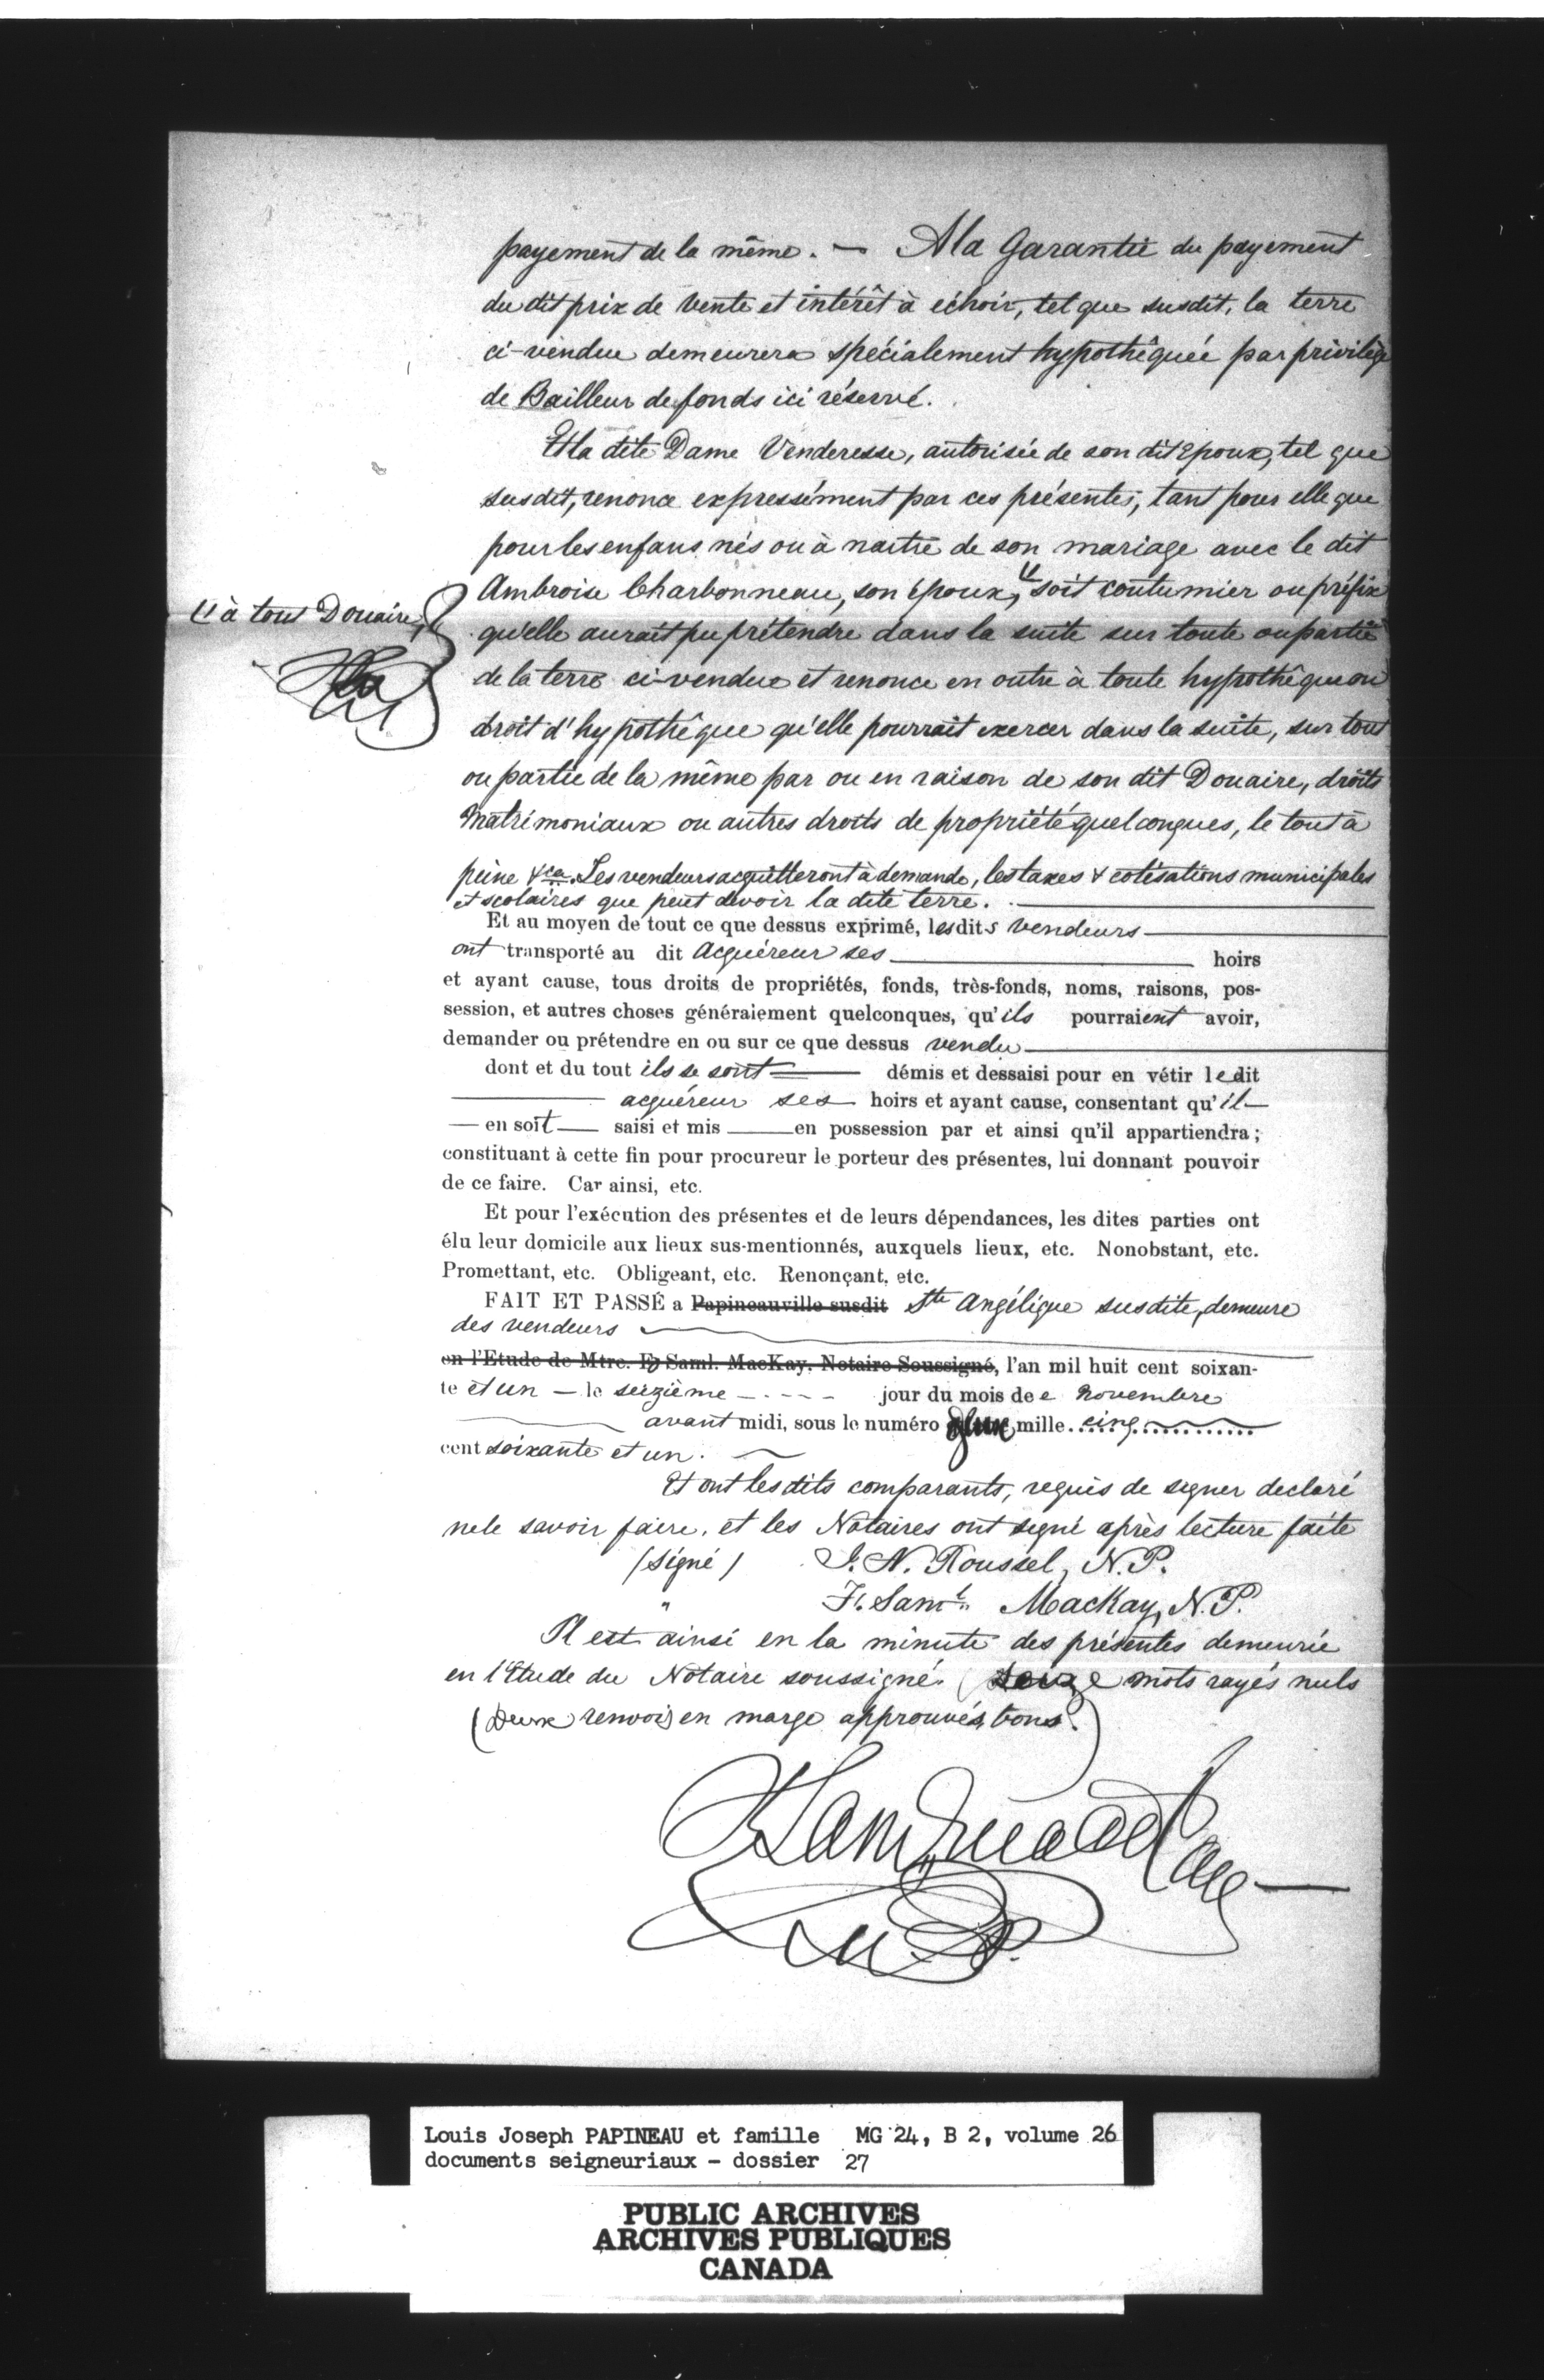 payement de la même. — A la Garantie du payement
du dit prix de Vente et intérêt à échoir, tel que susdit, la terre
ci-vendue demeurera spécialement hypothêquée par privilège
de Bailleur de fonds ici réservé.
Et la dite Dame Venderesse, autorisée de son dit Epoux, tel que
susdit, renonce expressément par ces présentes, tant pour elle que
pour les enfans nés ou à naitre de son mariage avec le dit
Ambroise Charbonneau, son époux, soit coutumier ou préfix
à tout Douaire,
qu'elle aurait pu prétendre dans la suite sur toute ou partie
de la terre ci-vendue et renonce en outre à toute hypothêque ou
droit d'hypothêque qu'elle pourrait exercer dans la suite, sur tout
ou partie de la même par ou en raison de son dit Douaire, droits
Matrimoniaux ou autres droits de propriété quelconques, le tout à
peine &ca. Les vendeurs acquitteront à demande, les taxes & cotisations municipales
et scolaires que peut devoir la dite terre.
Et au moyen de tout ce que dessus exprimé, lesdits vendeurs
ont transporté au dit Acquéreur ses hoirs
et ayant cause, tous droits de propriétés, fonds, très-fonds, noms, raisons, pos-
session, et autres choses généraiement quelconques, qu'ils pourraient avoir,
demander ou prétendre en ou sur ce que dessus vendu
dont et du tout ils se sont démis et dessaisi pour en vétir ledit
acquéreur ses hoirs et ayant cause, consentant qu'il
en soit saisi et mis en possession par et ainsi qu'il appartiendra ;
constituant à cette fin pour procureur le porteur des présentes, lui donnant pouvoir
de ce faire. Car ainsi, etc.
Et pour l'exécution des présentes et de leurs dépendances, les dites parties ont
élu leur domicile aux lieux sus-mentionnés, auxquels lieux, etc. Nonobstant, etc.
Promettant, etc. Obligeant, etc. Renonçant, etc.
FAIT ET PASSÉ a Papineauville susdit Ste Angélique susdite, demeure
des vendeurs
en l'Etude de Mtre. F. Saml. MacKay, Notaire Soussigné, l'an mil huit cent soixan-
te et un — le seizième — jour du mois de Novembre
avant midi, sous le numéro deux mille cinq
cent soixante et un.
Et ont les dits comparants, requis de signer declaré
ne le savoir faire, et les Notaires ont signé après lecture faite
(signé) J. N. Roussel, N. P.
" F. Saml. MacKay, N. P.
Il est ainsi en la minute des présentes demeurée
en l'Etude du Notaire soussigné. (Seize mots rayés nuls
(Deux renvois en marge approuvés, bons.)
F Saml MacKay
N. P.
Louis Joseph PAPINEAU et famille MG 24, B 2, volume 26
documents seigneuriaux - dossier 27
PUBLIC ARCHIVES
ARCHIVES PUBLIQUES
CANADA